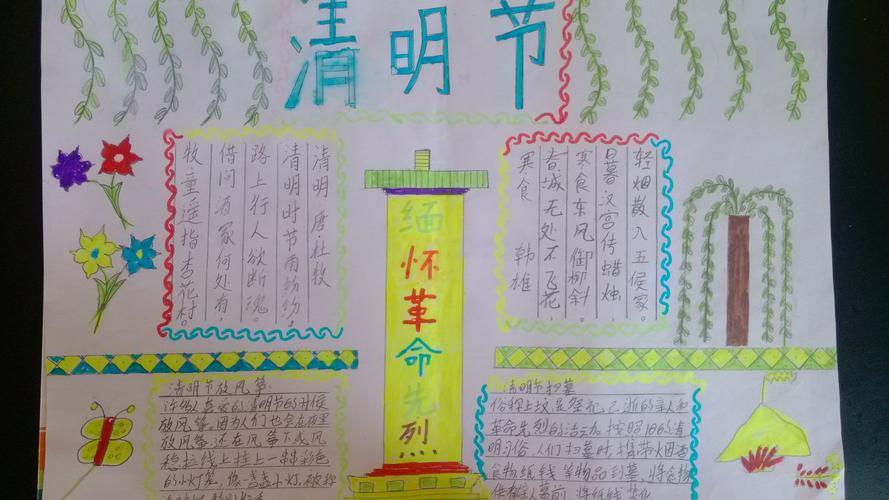 清明节
清明 唐·杜牧
清明时节雨纷纷，
路上行人欲断魂。
借问酒家何处有，
牧童遥指杏花村。
缅怀革命先烈
寒食 韩雄
春城无处不飞花
寒食东风御柳斜。
日暮汉宫传蜡烛，
轻烟散入五侯家。
清明节放风筝：
的清明节的时候
放风筝。因为人们也会在夜里
放风筝。还在风筝下或风
稳拉线上挂上一串彩色
的小灯笼，像盏盏小灯，被称
清明节扫墓
俗称上坟，是祭祀已逝的亲人和
革命先烈的活动。按照旧的清
明习俗，人们扫墓时，携带
食物纸钱等物品到墓，将食物
墓前，将纸钱焚化